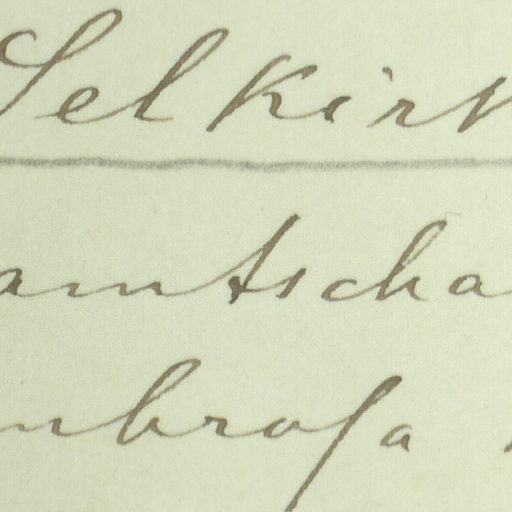 Selkirk
amtscha
mbroſa